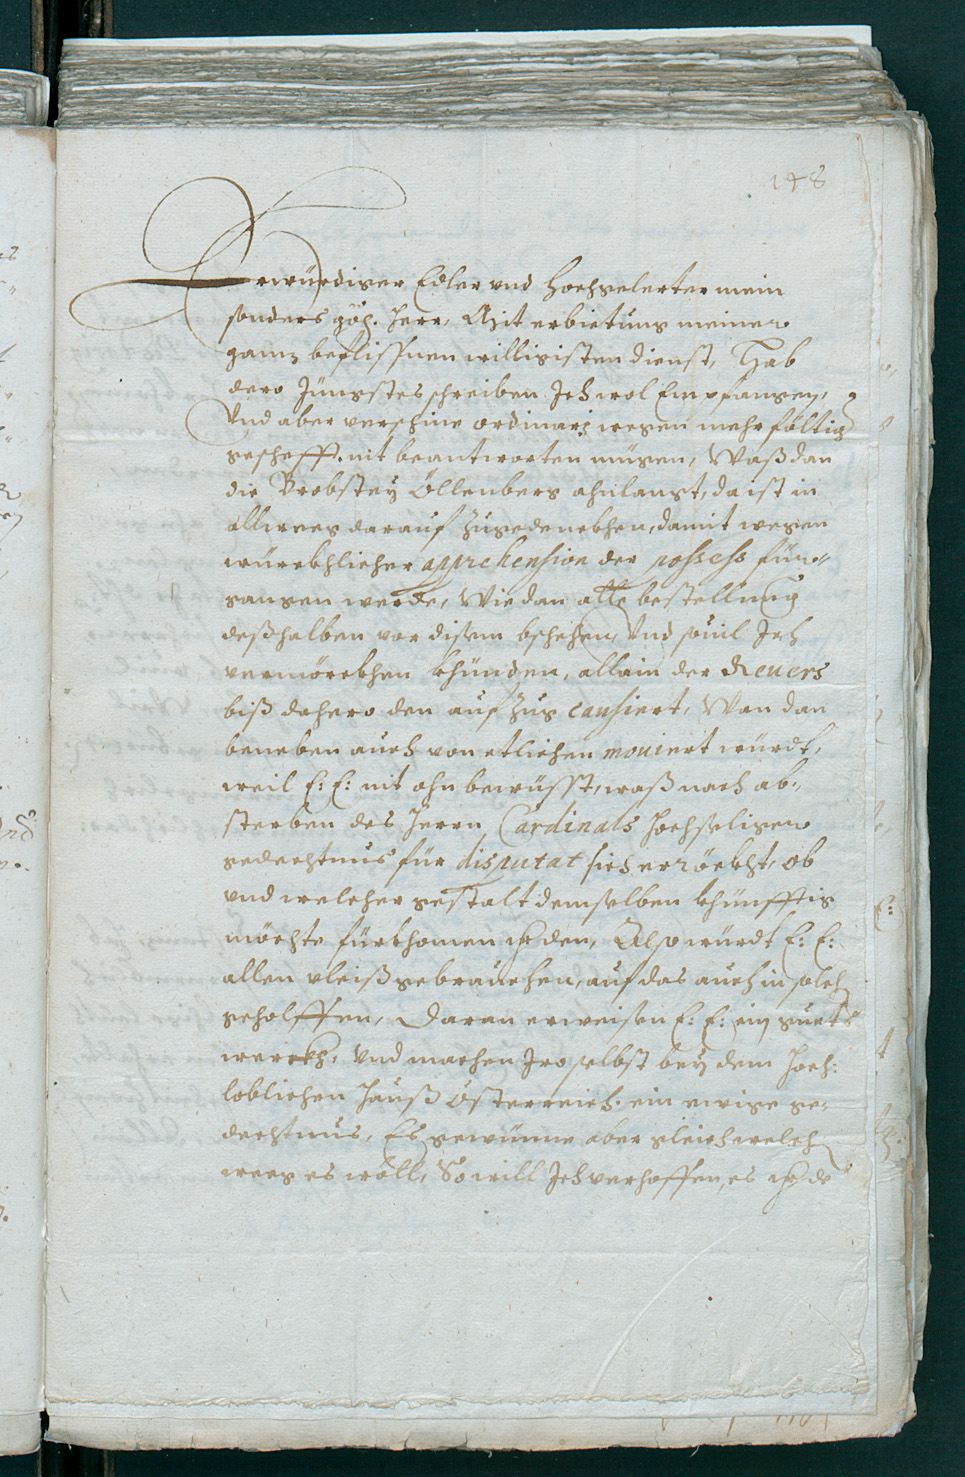 178
Erwürdiger Edler vnd Hochgelerter mein
sonders gön. Herr, Mit erbietung meiner
gannz beflissnen willigisten dienst, Hab
dero Jüngstes schreiben Ich wol Empfangen,
Vnd aber verschine ordinari wegen mehrföltig
gescheff. nit beantworten mügen, Waß dan
die Brobstey Öllenberg ahnlangt, da ist in
allweeg darauf zugedenckhen, damit wegen
würckhlicher apprehension der possess für-
gangen werde, Wie dan alle bestellung
deßhalben vor disem bschehen, Vnd souil Ich
vermörckhen khünden, allain der Reuers
biß dahero den aufzug causiert, Wan dan
beneben auch von etlichen mouiert würdt,
weil E: E: nit ohn bewüsst, waß nach ab-
sterben des Herrn Cardinals Hochseliger
gedechtnus für disputat sich erröckht, ob
vnd welcher gestalt demselben khünfftig
möchte fürkhomen werden, Also würdt E: E:
allen vleiß gebrauchen, auf das auch in solch
geholffen, Daran erweisen E: E: ein guets
werckh, Vnd machen Iro selbst bey dem Hoch:
loblichen Hauß Österreich. ein ewige ge-
dechtnus, Es gewünne aber gleich welch
weeg es wöll, So will Ich verhoffen, es werde